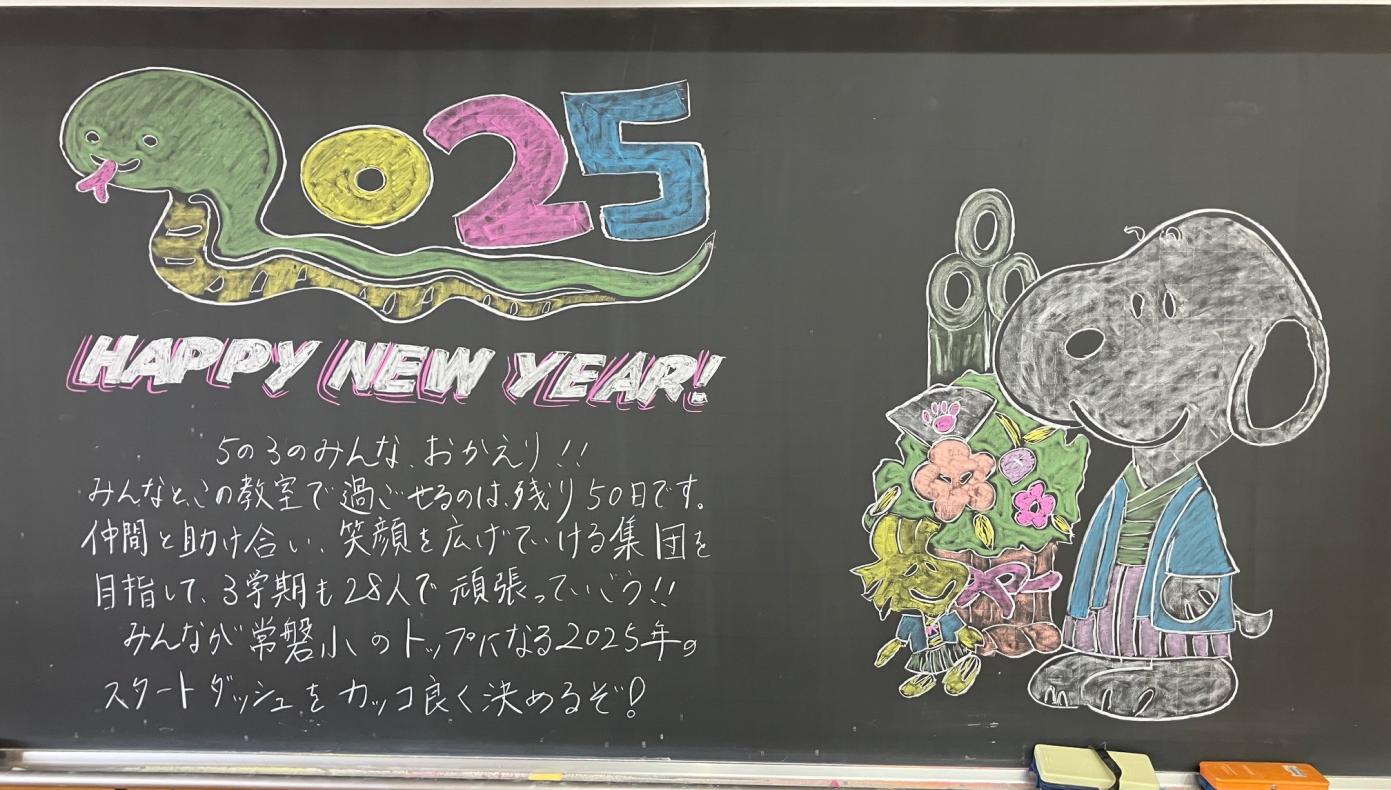 2025
HAPPY NEW YEAR!
5の3のみんな、おかえり!!
みんなと、この教室で過ごせるのは、残り50日です。
仲間と助け合い、笑顔を広げていける集団を
目指して、3学期も28人で頑張っていこう!!
みんなが常磐小のトップになる2025年の
スタートダッシュをカッコ良く決めるぞ!